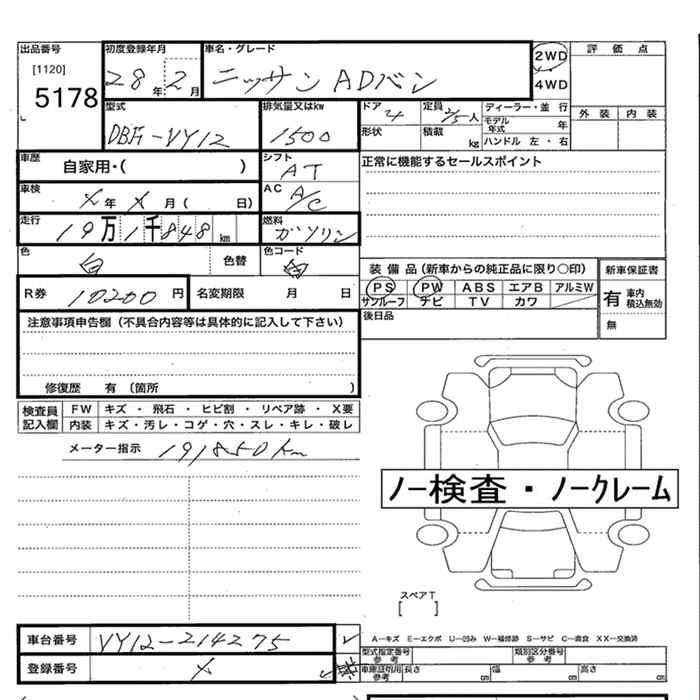 出品番号 初度登録年月 車名・グレード 評価点
[1120]
5178
28年 2月 ニッサン ADバン
2WD
4WD
外装 内装
型式 排気量又はkw ドア 定員 人 ディーラー・並行
DBF-VY12 1500 4 2/5
形状 積載 kg モデル年式 年
ハンドル 左・右
車歴 自家用・( ) シフト AT
正常に機能するセールスポイント
車検 X年 X月( 日) AC A/C
走行 19万1千848km 燃料 ガソリン
色 白 色替 色コード
装備品(新車からの純正品に限り○印) 新車保証書
R券 10200円 名変期限 月 日
PS PW ABS エアB アルミW
サンルーフ ナビ TV カワ
有 車内積込無効
無
後日品
注意事項申告欄(不具合内容等は具体的に記入して下さい)
修復歴 有(箇所 )
検査員記入欄 FW キズ・飛石・ヒビ割・リペア跡・X要
内装 キズ・汚レ・コゲ・穴・スレ・キレ・破レ
メーター指示 191850km
ノー検査・ノークレーム
スペアT
[ ]
車台番号 VY12-214275
登録番号 X
A−キズ E−エクボ U−凹み W−補修跡 S−サビ C−腐食 XX−交換済
型式指定番号 参考 類別区分番号 参考
車庫証明用 参考 長さ cm 幅 cm 高さ cm